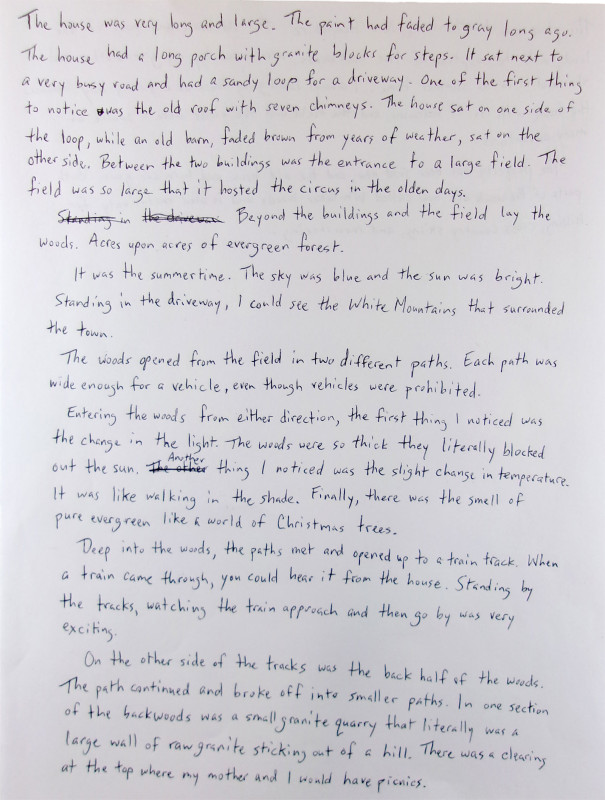 The house was very long and large. The paint had faded to gray long ago.
The house had a long porch with granite blocks for steps. It sat next to
a very busy road and had a sandy loop for a driveway. One of the first thing
to notice was the old roof with seven chimneys. The house sat on one side of
the loop, while an old barn, faded brown from years of weather, sat on the
other side. Between the two buildings was the entrance to a large field. The
field was so large that it hosted the circus in the olden days.
Standing in the driveway Beyond the buildings and the field lay the
woods. Acres upon acres of evergreen forest.
It was the summertime. The sky was blue and the sun was bright.
Standing in the driveway, I could see the White Mountains that surrounded
the town.
The woods opened from the field in two different paths. Each path was
wide enough for a vehicle, even though vehicles were prohibited.
Entering the woods from either direction, the first thing I noticed was
the change in the light. The woods were so thick they literally blocked
out the sun. The other Another thing I noticed was the slight change in temperature.
It was like walking in the shade. Finally, there was the smell of
pure evergreen like a world of Christmas trees.
Deep into the woods, the paths met and opened up to a train track. When
a train came through, you could hear it from the house. Standing by
the tracks, watching the train approach and then go by was very
exciting.
On the other side of the tracks was the back half of the woods.
The path continued and broke off into smaller paths. In one section
of the backwoods was a small granite quarry that literally was a
large wall of raw granite sticking out of a hill. There was a clearing
at the top where my mother and I would have picnics.